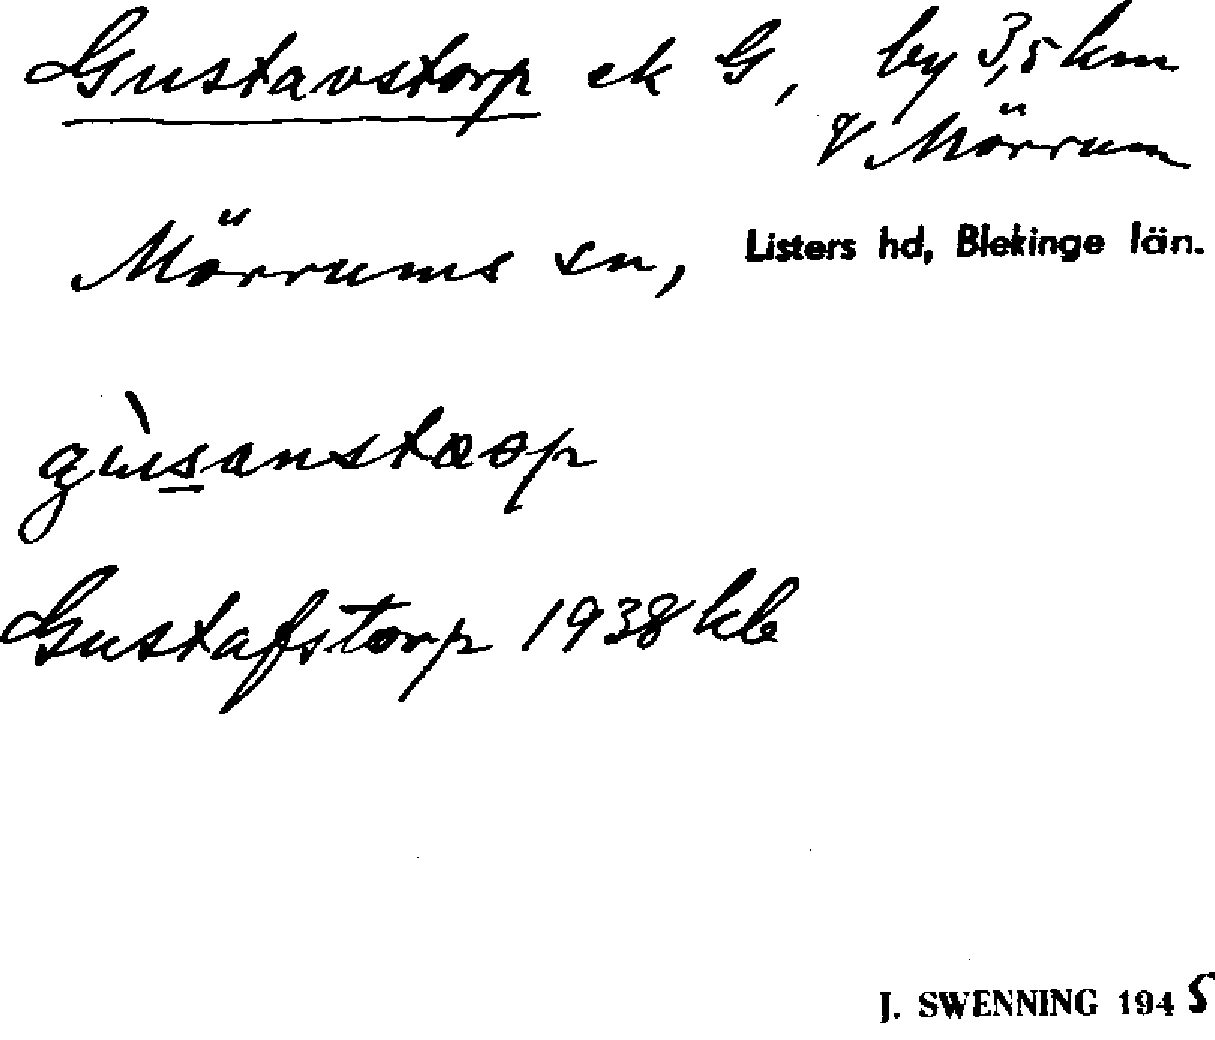 Gustavstorp ek G, by 3,5 km
V Mörrum
Mörrums sn, Listers hd, Blekinge län.
gùsanstaop
Gustafstorp 1938 kb
J. SWENNING 1945